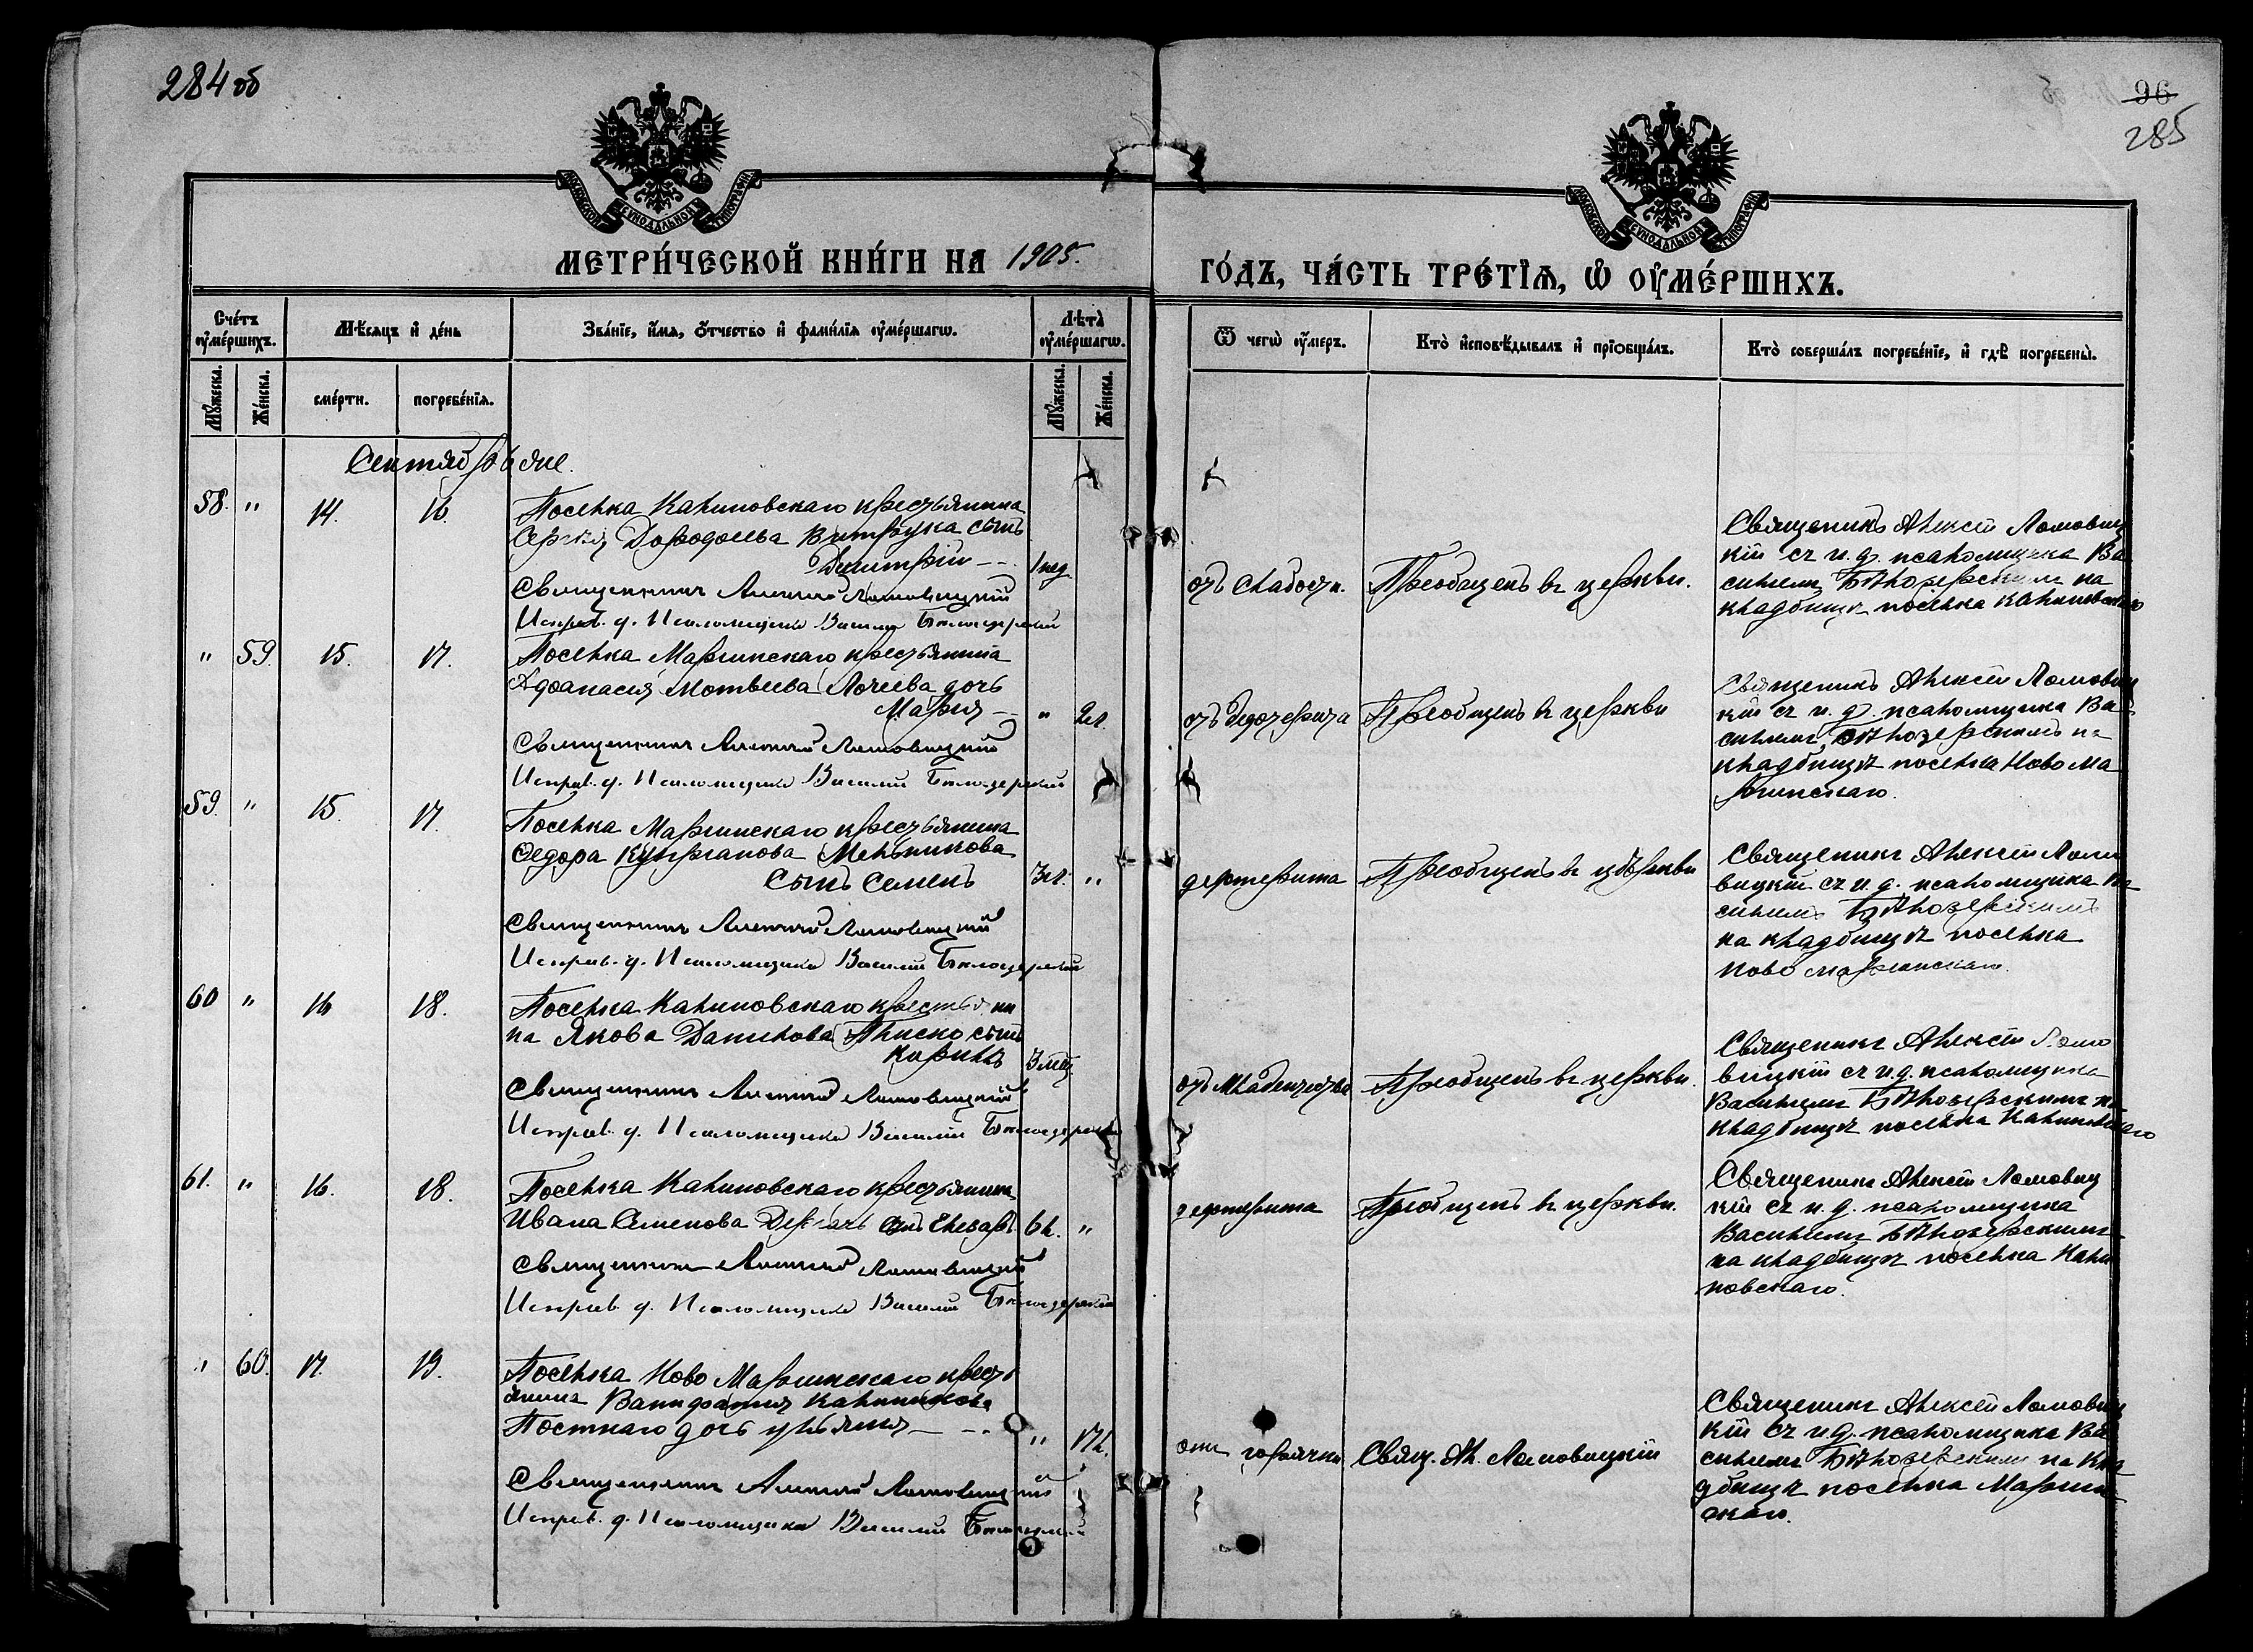 284 об
96
285
МОСКОВСКОЙ СѴНОДАЛЬНОЙ ТИПОГРАФІИ
МОСКОВСКОЙ СѴНОДАЛЬНОЙ ТИПОГРАФІИ
МЕТРИ́ЧЕСКОЙ КНИ́ГИ НА 1905.
ГО́ДЪ, ЧА́СТЬ ТРЕ́ТІѦ, Ѡ҆ ОУ҆МЕ́РШИХЪ.
Сче́тъ оу҆ме́ршихъ.
Мѣ́сяцъ и҆ де́нь
Зва́ніе, и҆́мя, ѻ҆́тчество и҆ фами́лія оу҆ме́ршагѡ.
Лѣта̀ оу҆ме́ршагѡ.
Ѿ чегѡ̀ оу҆́меръ.
Кто̀ и҆сповѣ́дывалъ и҆ прїобща́лъ.
Кто̀ соверша́лъ погребе́ніе, и҆ гдѣ̀ погребены̀.
Му́жеска.
Же́нска.
сме́рти.
погребе́нїя.
Му́жеска.
Же́нска.
Сентябрь
58. " 14. 16.
Поселка Калиновскаго крестьянина
Сергія Дорофеева Витрука сынъ
Димитрій -- 1 нед.
Священникъ Алексій Ломовицкій
Исправ. д. Псаломщика Василій Бѣлозерскій
отъ слабости.
Пріобщенъ въ церкви.
Священикъ Алексій Ломовиц
кій съ и. д. псаломщика Ва
силіемъ Бѣлозерскимъ на
кладбищѣ поселка Калиновскаго
" 59. 15. 17.
Поселка Маріинскаго крестьянина
Афанасія Матвѣева Лочева дочь
Марія -- " 2 л.
Священникъ Алексій Ломовицкій
Исправ. д. Псаломщика Василій Бѣлозерскій
отъ дифтерита
Пріобщенъ въ церкви
Священикъ Алексій Ломовиц
кій съ и. д. псаломщика Ва
силіемъ Бѣлозерскимъ на
кладбищѣ поселка Ново Ма
ріинскаго.
59. " 15. 17.
Поселка Маріинскаго крестьянина
Федора Мельникова
сынъ Семенъ 3 л. "
Священникъ Алексій Ломовицкій
Исправ. д. Псаломщика Василій Бѣлозерскій
дифтерита
Пріобщенъ въ церкви
Священикъ Алексій Ломо
вицкій съ и. д. псаломщика Ва
силіемъ Бѣлозерскимъ
на кладбищѣ поселка
Ново Маріинскаго.
60 " 16 18.
Поселка Калиновскаго крестьяни
на Якова Данилова Плиско сынъ
Кирилъ 3 мѣс.
Священникъ Алексій Ломовицкій
Исправ. д. Псаломщика Василій Бѣлозерскій
отъ младенчества
Пріобщенъ въ церкви.
Священикъ Алексій Ломо
вицкій съ и. д. псаломщика
Василіемъ Бѣлозерскимъ на
кладбищѣ поселка Калиновскаго
61. " 16. 18.
Поселка Калиновскаго крестьянина
Ивана Семенова Дергачъ сынъ Елеазаръ 6 л. "
Священникъ Алексій Ломовицкій
Исправ. д. Псаломщика Василій Бѣлозерскій
дифтерита
Пріобщенъ въ церкви.
Священикъ Алексій Ломовиц
кій съ и. д. псаломщика
Василіемъ Бѣлозерскимъ
на кладбищѣ поселка Кали
новскаго.
" 60. 17. 19.
Поселка Ново Маріинскаго кресть
янина Калиникова
Постнаго дочь Ульянія -- " 17 л.
Священникъ Алексій Ломовицкій
Исправ. д. Псаломщика Василій Бѣлозерскій
отъ горячки
Свящ. Ал. Ломовицкій
Священикъ Алексій Ломовиц
кій съ и. д. псаломщика Ва
силіемъ Бѣлозерскимъ на кла
дбищѣ поселка Маріин
скаго.